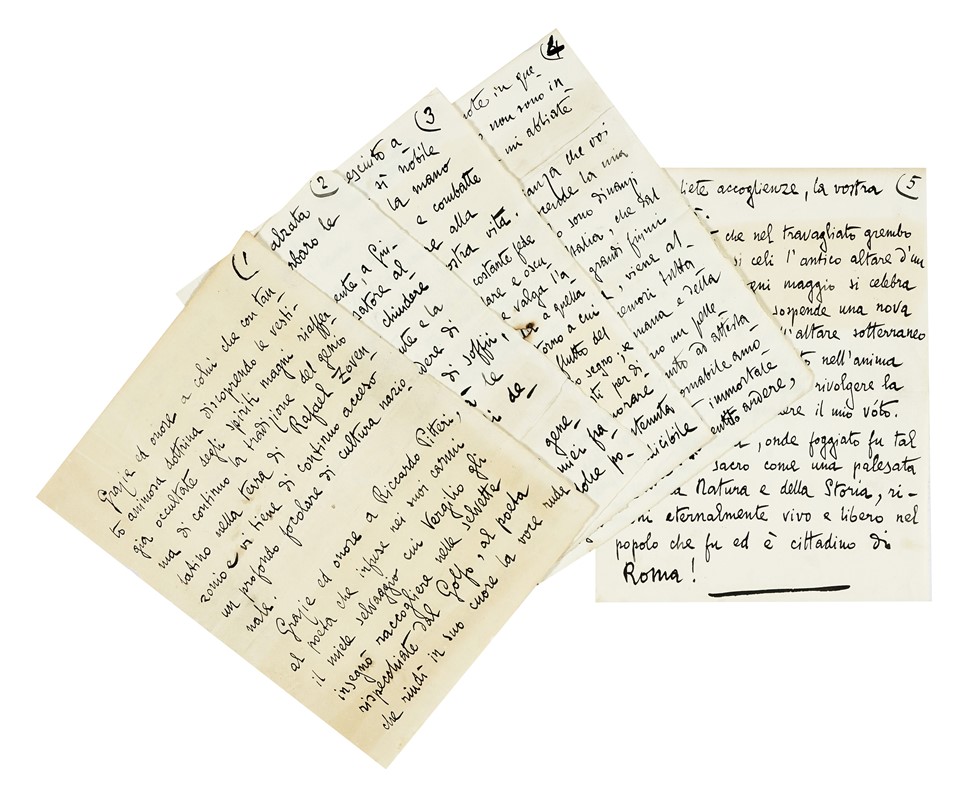 (1
Grazie ed onore a colui che con tan-
to animosa dottrina discoprendo le vesti-
gia occultate degli spiriti magni riaffer-
ma di continuo la tradizione del genio
latino nella terra di Rafael Zoven-
zonio e vi tiene di continuo acceso
un profondo focolare di cultura nazio-
nale.
Grazie ed onore a Riccardo Pitteri,
al poeta che infuse nei suoi carmi
il miele selvaggio cui Vergilio gli
insegnò raccogliere nelle selvette
rispecchiate dal Golfo, al poeta
che rindi in suo cuore la voce
(2
obaro le
ente, a Giu-
atore al
chiudere
nte e la
dere di
di soffri,
le
de-
(3
esciuto a
sì nobile
la mano
e combatte
alla
ostra vita.
costante fede
lare e oscu
e valga l'a
a quella
orno a cui
flutto del
segno; se
per di
norare
gene-
miei fra
oche po-
(4
note in que-
non sono in
mi abbiate
anza che voi
cende la mia
sono dinanzi
Italia, che dal
grandi fiumi
, viene al-
remori tutta
mana e della
mo un pelle
unto ad attesta
ornabile amo-
immortale
ento andare,
dicibile
(5
liete accoglienze, la vostra
che nel travagliato grembo
si celi l'antico altare d'un
ogni maggio si celebra
sospende una nova
l'altare sotterraneo
nell'anima
rivolgere la
ere il mio vóto.
, onde foggiato fu tal
sacro come una palesata
a Natura e della Storia, ri-
ni eternalmente vivo e libero nel
popolo che fu ed è cittadino di
Roma!